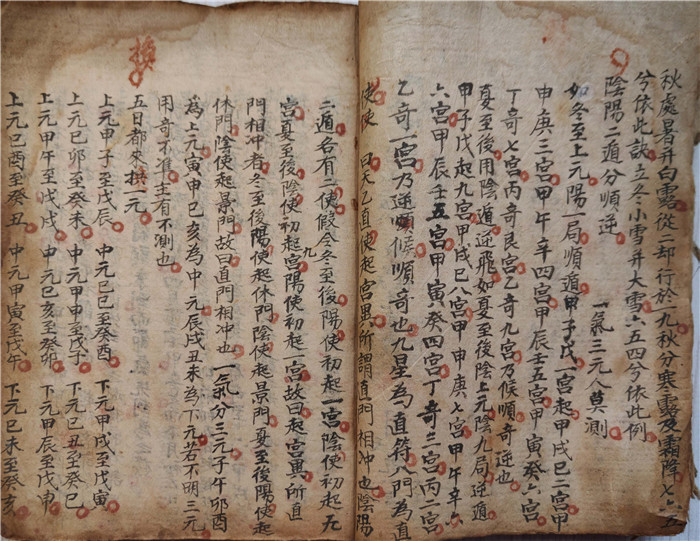 秋處暑并白露從二却行於九秋分寒露及霜降七六五
兮依此訣立冬小雪并大雪六五四兮依此例
陰陽二遁分順逆 一氣三元人莫測
如冬至上元陽一局順遁甲子戊一宮起甲戌巳二宮甲
申庚三宮甲午辛四宮甲辰壬五宮甲寅癸六宮
丁奇七宮丙奇艮宮乙奇九宮乃候順奇逆也
夏至後用陰遁逆飛如夏至後陰上元陰九局逆遁
甲子戊起九宮甲戌巳八宮甲申庚七宮甲午辛六
六宮甲辰壬五宮甲寅癸四宮丁奇三宮丙二宮
乙奇一宮乃逆順候順奇也九星為直符八門為直
使使 曰天乙直使起宮異所謂直門相冲也陰陽
換
二遁各有二使假令冬至後陽使初起一宮陰使初起九
宮夏至後陰使初起九宮陽使初起一宮故曰起宮異所直
門相冲者冬至後陽使起休門陰使起景門夏至後陽使起
休門陰使起景門故曰直門相冲也 一氣分三元子午卯酉
為上元寅申巳亥為中元辰戌丑未為下元若不明三元
用奇不准主有不測也
五日都來換一元
上元甲子至戊辰 中元巳巳至癸酉 下元甲戌至戊寅
上元巳卯至癸未 中元甲申至戊子 下元巳丑至癸巳
上元甲午至戊戌 中元巳亥至癸卯 下元甲辰至戊申
上元巳酉至癸丑 中元甲寅至戊午 下元巳未至癸亥